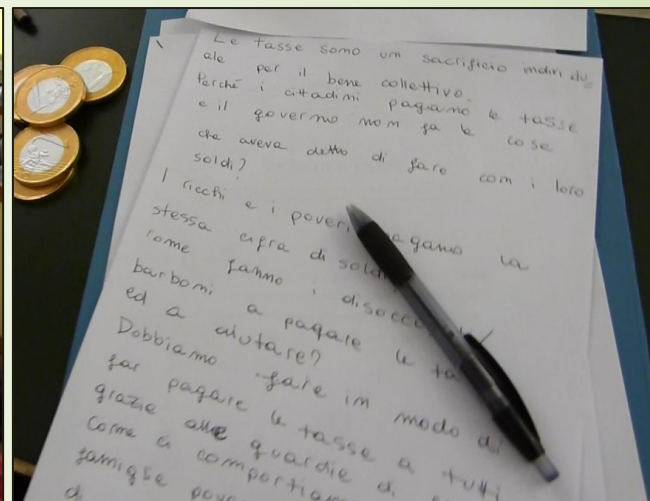 Le tasse sono un sacrificio individu
ale per il bene collettivo.
Perché i cittadini pagano le tasse
e il governo non fa le cose
che aveva detto di fare con i loro
soldi?
I ricchi e i poveri pagano la
stessa cifra di
come fanno i
barboni a pagare le
ed a aiutare?
Dobbiamo fare in modo di
far pagare le tasse a tutti
grazie alle guardie di
Come ci
famiglie
di